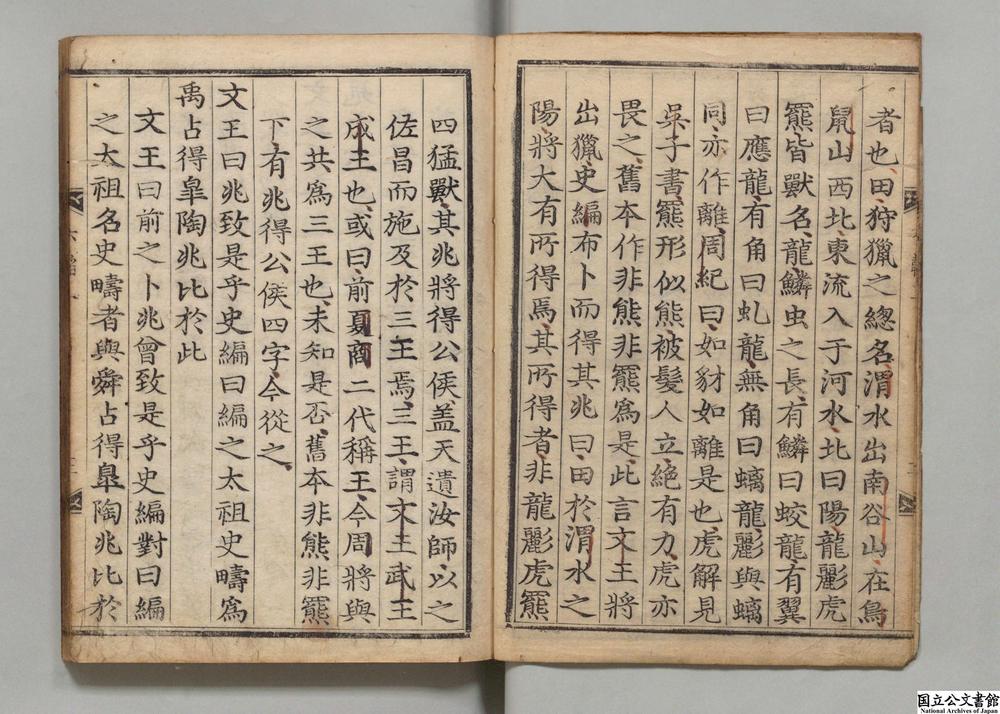 者也田狩獵之總名渭水出南谷山在鳥
鼠山西北東流入于河水北曰陽龍彲虎
羆皆獸名龍鱗虫之長有鱗曰蛟龍有翼
曰應龍有角曰虬龍無角曰螭龍彲與螭
同亦作離周紀曰如豺如離是也虎解見
吳子書羆形似熊被髮人立絕有力虎亦
畏之舊本作非熊非羆爲是此言文王將
出獵史編布卜而得其兆曰田於渭水之
陽將大有所得焉其所得者非龍彲虎羆
四猛獸其兆將得公侯盖天遺汝師以之
佐昌而施及於三王焉三王謂文王武王
成王也或曰前夏商二代稱王今周將與
之共爲三王也未知是否舊本非熊非羆
下有兆得公侯四字今從之
文王曰兆致是乎史編曰編之太祖史疇爲
禹占得皐陶兆比於此
文王曰前之卜兆曾致是乎史編對曰編
之太祖名史疇者與舜占得皐陶兆比於
国立公文書館
National Archives of Japan